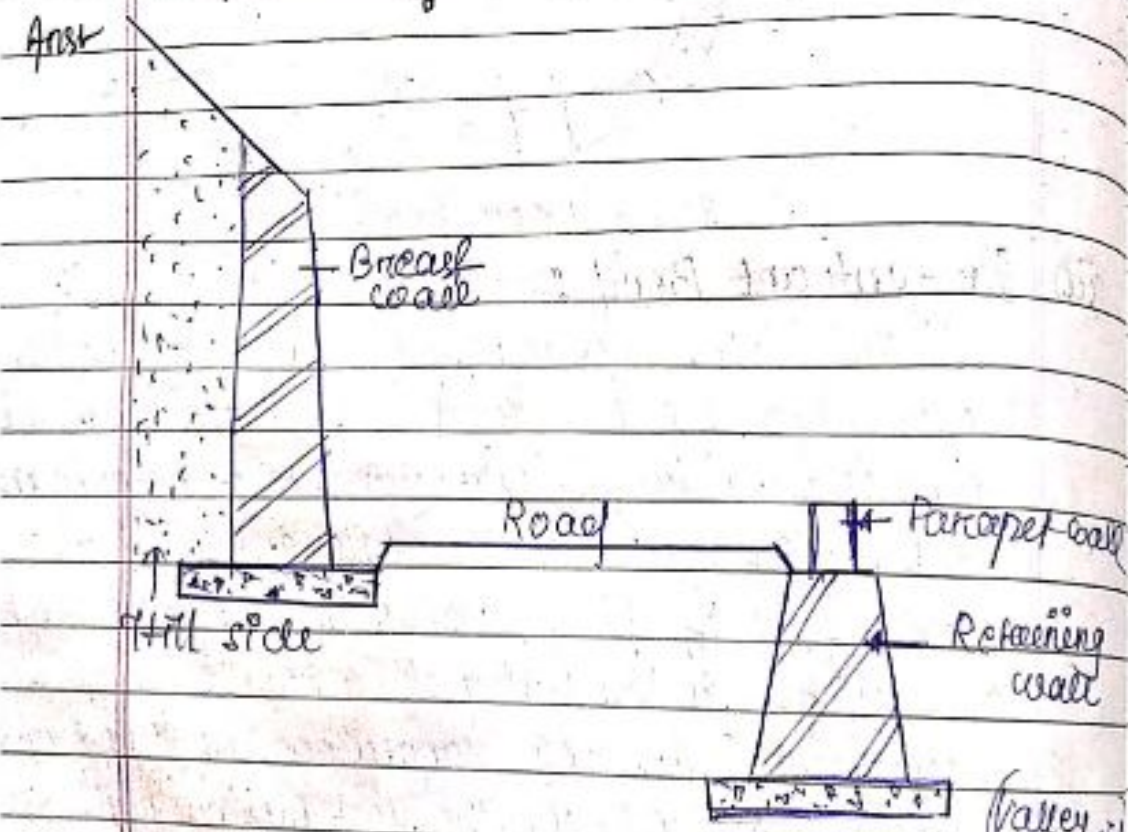 Ans:
Breast
wall
Road
Parapet wall
Hill side
Retaining
wall
(Valley